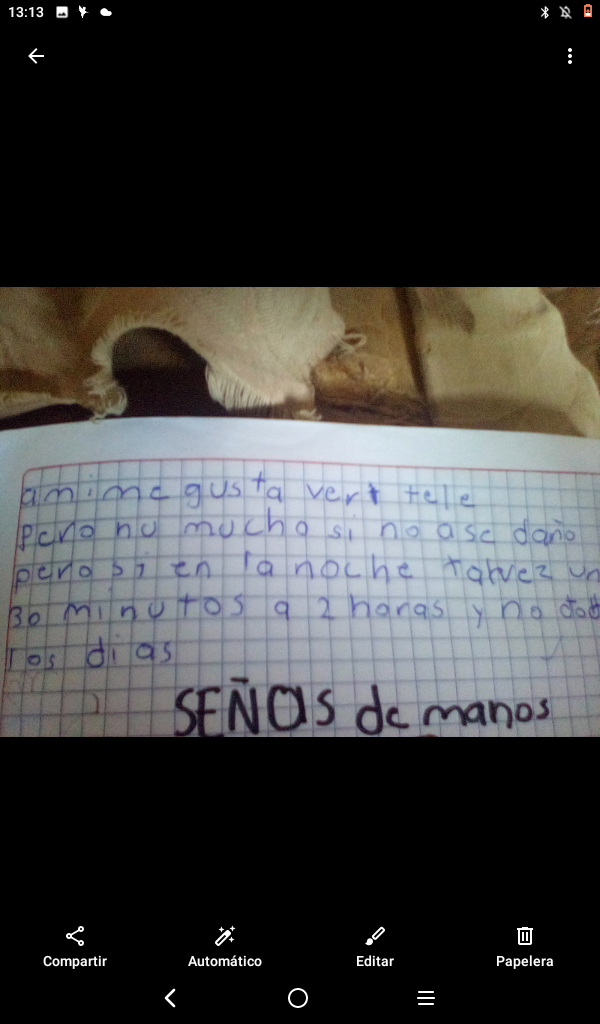 13:13
a mi me gusta ver tele
pero no mucho si no ase daño
pero si en la noche talvez un
30 minutos a 2 horas y no
los dias
SEÑAS de manos
Compartir
Automático
Editar
Papelera